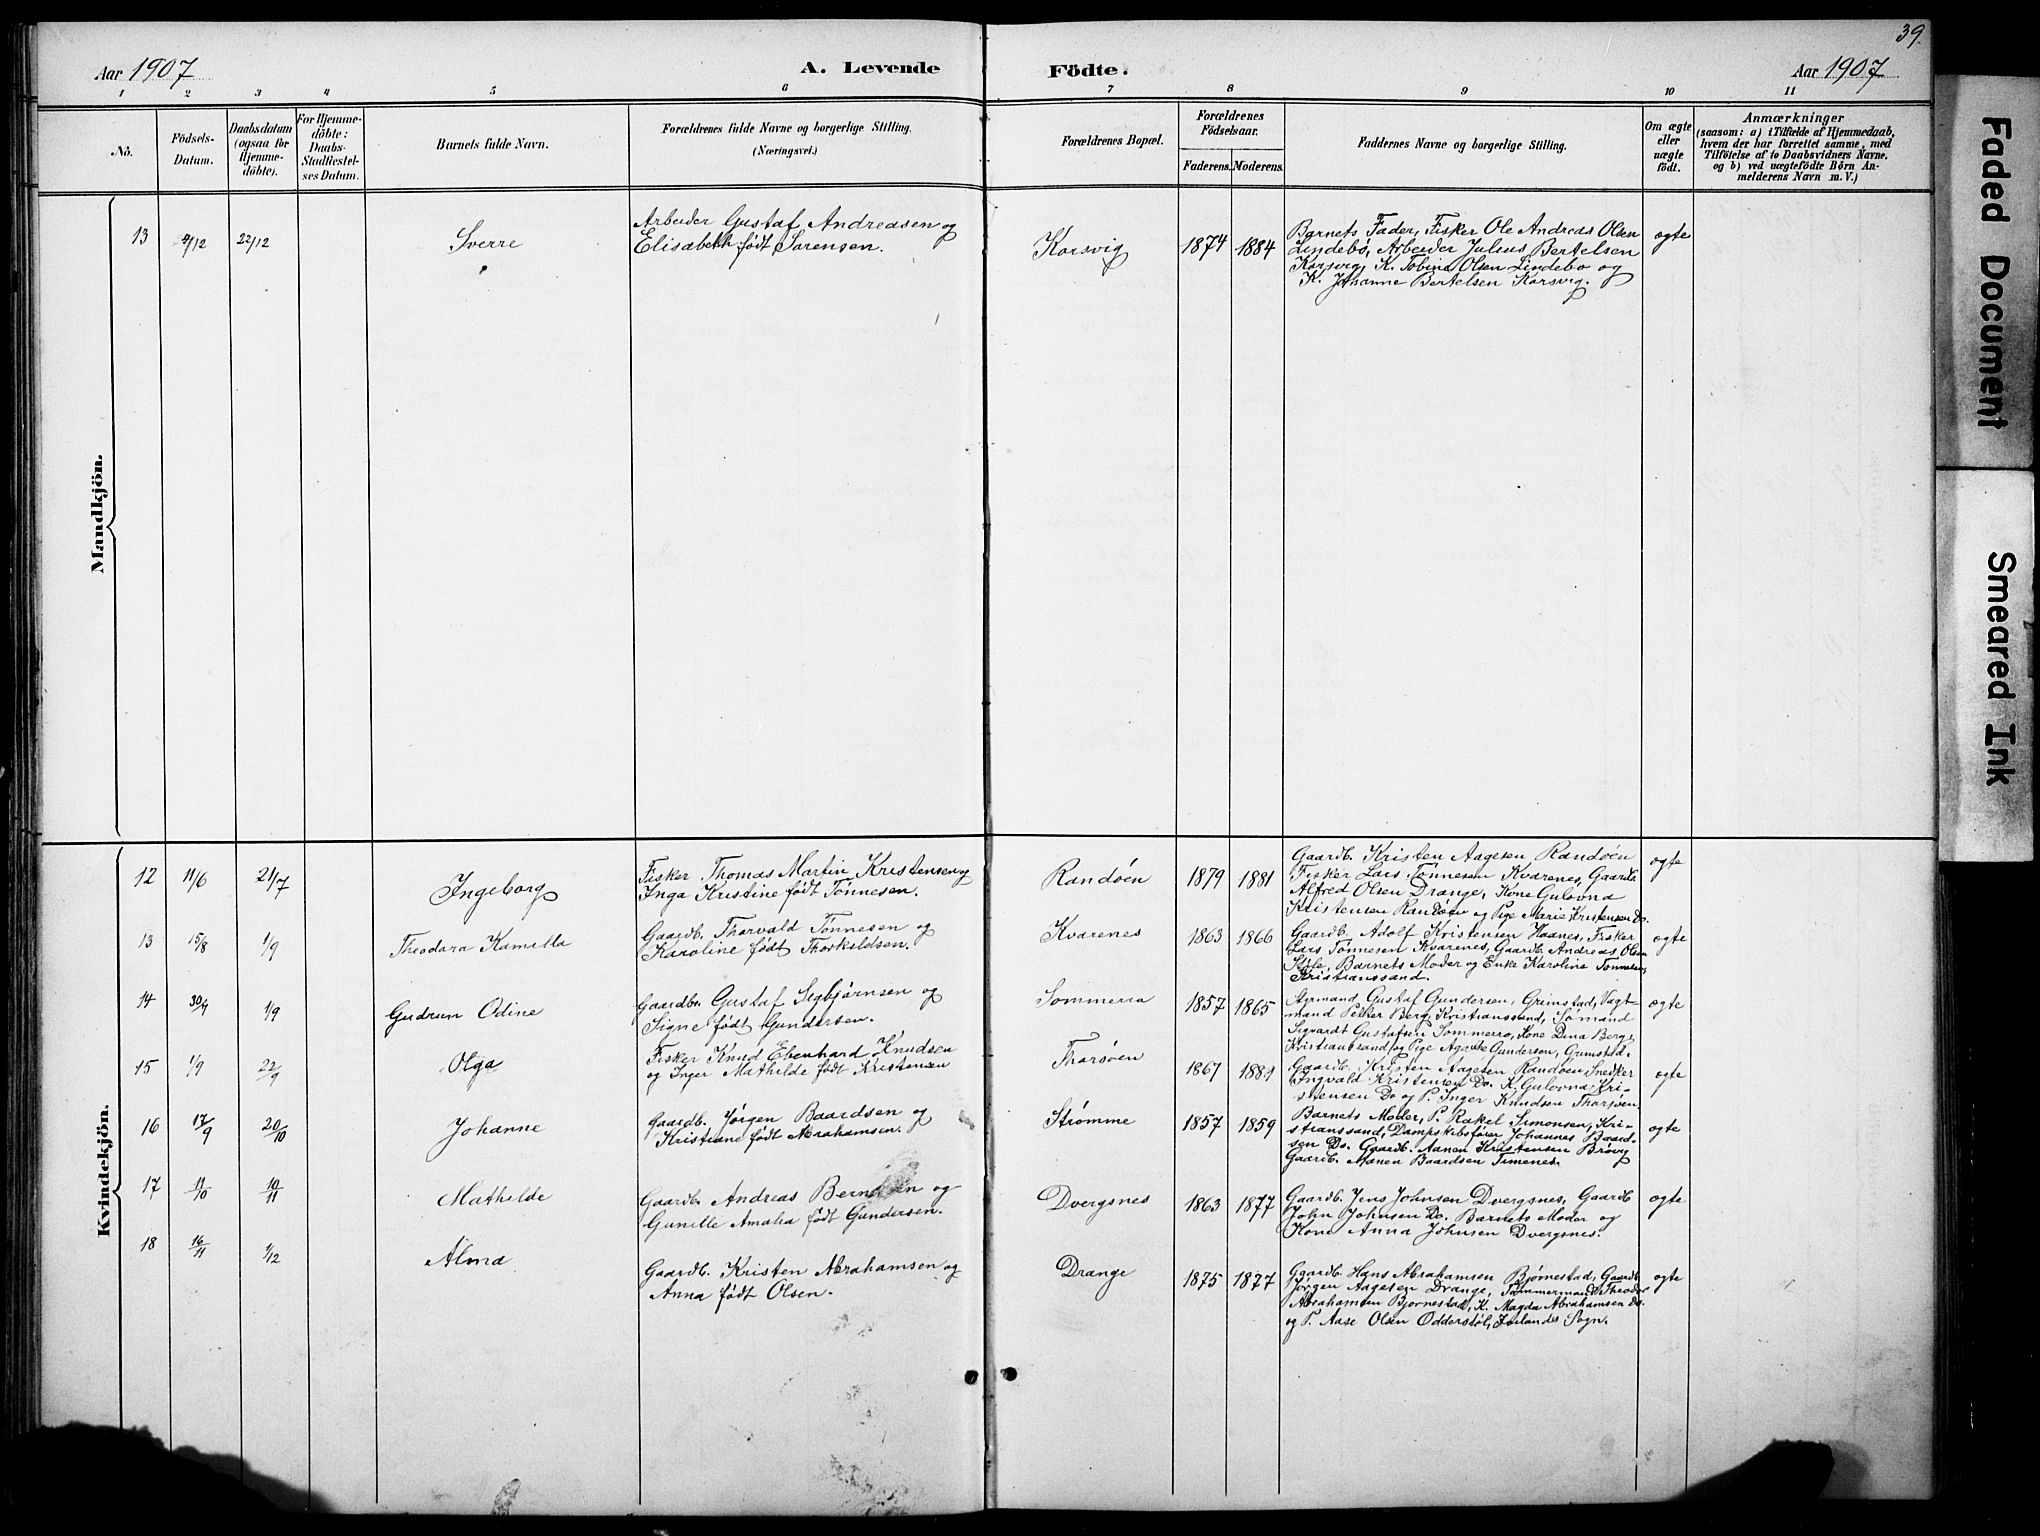 39.
Aar 1907
A. Levende Födte.
Aar 1907
1 2 3 4 5 6 7 8 9 10 11
No.
Födsels-Datum.
Daabsdatum (ogsaa for Hjemme-döbte).
For Hjemme-döbte: Daabs-Stadfæstel-ses Datum.
Barnets fulde Navn.
Forældrenes fulde Navne og borgerlige Stilling.
(Næringsvei.)
Forældrenes Bopæl.
Forældrenes Födselsaar.
Faderens. Moderens.
Faddernes Navne og borgerlige Stilling.
Om ægte eller uægte födt.
Anmærkninger
(saasom: a) i Tilfælde af Hjemmedaab,
hvem der har forrettet samme, med
Tilföielse af to Daabsvidners Navne,
og b) ved uægtefödte Börn An-
melderens Navn m. V.)
Mandkjön.
13 4/12 22/12 Sverre
Arbeider Gustaf Andreasen og
Elisabeth født Sørensen.
Korsvig 1874 1884
Barnets Fader, Fisker Ole Andreas Olsen
Lindebø, Arbeider Julius Bertelsen
Korsvig, K. Tobine Olsen Lindebø og
K. Johanne Bertelsen Korsvig.
ægte
Kvindekjön.
12 11/6 21/7 Ingeborg
Fisker Thomas Martin Kristensen og
Inga Kristine født Tønnesen.
Randøen 1879 1881
Gaardb. Kristen Aagesen Randøen
Fisker Lars Tønnesen Kvarenes, Gaardb.
Alfred Olsen Drange, Kone Gulovna
Kristensen Randøen og Pige Marie Kristensen Do.
ægte
13 15/8 1/9 Theodora Kamilla
Gaardb. Thorvald Tønnesen og
Karoline født Thorkildsen.
Kvarenes 1863 1866
Gaardb. Adolf Kristensen Haanes, Fisker
Lars Tønnesen Kvarenes, Gaardb. Andreas Olsen
Støle, Barnets Moder og Enke Karoline Tønnesen,
Kristianssand.
ægte
14 30/4 1/9 Gudrun Odine
Gaardbr. Gustaf Sigbjørnsen og
Signe født Gundersen.
Sommerro 1857 1865
Styrmand Gustaf Gundersen, Grimstad, Vagt-
mand Petter Berg, Kristianssand, Sømand
Sigvardt Gustafsen Sommerro, Kone Dina Berg,
Kristianssand, og Pige Agathe Gundersen, Grimstad.
ægte
15 1/9 22/9 Olga
Fisker Knud Ebenhard Knudsen
og Inger Mathilde født Kristensen
Thorsøen 1867 1881
Gaardb. Kristen Aagesen Randøen, Snedker
Ingvald Kristensen Do. K. Gulovna Kri-
stensen Do og P. Inger Knudsen Thorsøen.
ægte
16 17/9 20/10 Johanne
Gaardb. Jørgen Baardsen og
Kristiane født Abrahamsen.
Strømme 1857 1859
Barnets Moder, P. Rakel Simonsen, Kri-
stianssand, Dampskibsfører Johannes Baard-
sen Do. Gaardb. Aanen Kristensen Brøvig
Gaardb. Aanen Baardsen Timenes.
ægte
17 11/10 10/11 Mathilde
Gaardb. Andreas Berntsen og
Gunille Amalia født Gundersen.
Dvergsnes 1863 1877
Gaardb. Jens Johnsen Dvergsnes, Gaardb
John Johnsen Do. Barnets Moder og
Kone Anna Johnsen Dvergsnes.
ægte
18 16/11 1/12 Alma
Gaardb. Kristen Abrahamsen og
Anna født Olsen.
Drange 1875 1877
Gaardb. Hans Abrahamsen Bjørnestad, Gaardb
Jørgen Aagesen Drange, Tømmermand Theodor
Abrahamsen Bjørnestad, K. Magda Abrahamsen Do.
og P. Aase Olsen Odderstøl, Ivelandes Sogn.
ægte
Faded Document
Smeared Ink